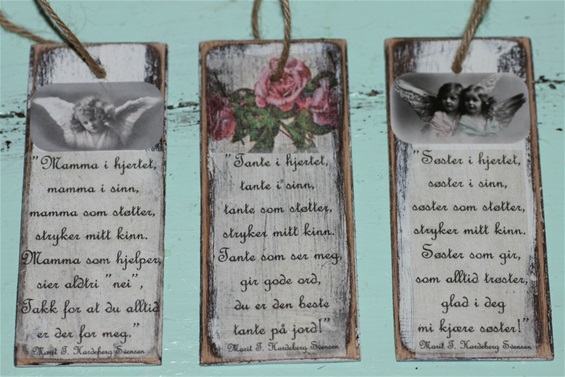 "Mamma i hjertet,
mamma i sinn,
mamma som støtter,
stryker mitt kinn.
Mamma som hjelper,
sier aldtri "nei",
Takk for at du alltid
er der for meg."
Marit T. Hardeberg Svensen
"Tante i hjertet,
tante i sinn,
tante som støtter,
stryker mitt kinn.
Tante som ser meg,
gir gode ord,
du er den beste
tante på jord!"
Marit T. Hardeberg Svensen
"Søster i hjertet,
søster i sinn,
søster som støtter,
stryker mitt kinn.
Søster som gir,
som alltid trøster,
glad i deg
mi kjære søster!"
Marit T. Hardeberg Svensen